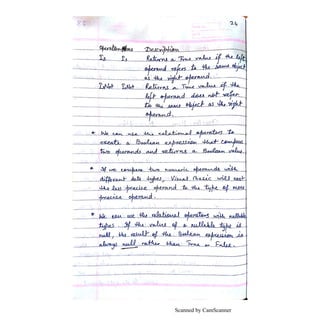 24
Operators Name Description
Is Is Returns a True value if the left
operand refers to the same object
as the right operand.
IsNot IsNot Returns a True value if the
left operand does not refer
to the same object as the right
operand.
* We can use the relational operators to
create a Boolean expression that compare
two operands and returns a Boolean value.
* If we compare two numeric operands with
different data types, Visual Basic will cast
the less precise operand to the type of more
precise operand.
* We can use the relational operators with nullable
types. If the value of a nullable type is
null, the result of the Boolean expression is
always null rather than True or False.
Scanned by CamScanner